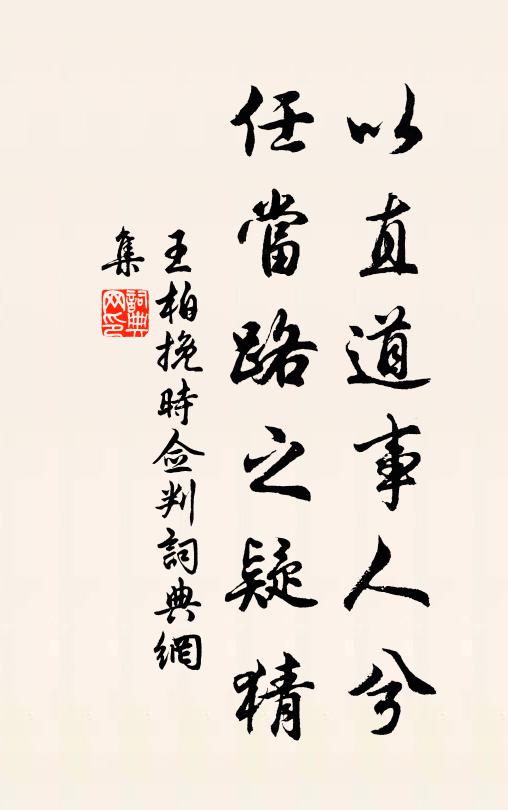 以直道事人兮
任當路之疑猜
王柏挽時僉判詞典網
集
詞典网印